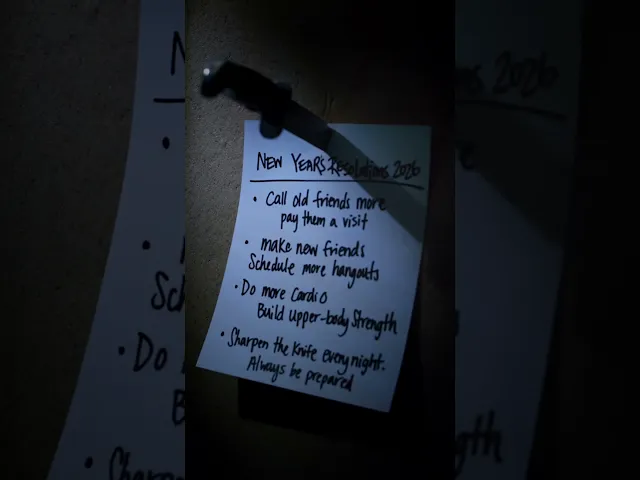 NEW YEAR'S Resolutions 2026
• Call old friends more
pay them a visit
• make new friends
Schedule more hangouts
• Do more Cardio
Build upper-body Strength
• Sharpen the Knife every night.
Always be prepared